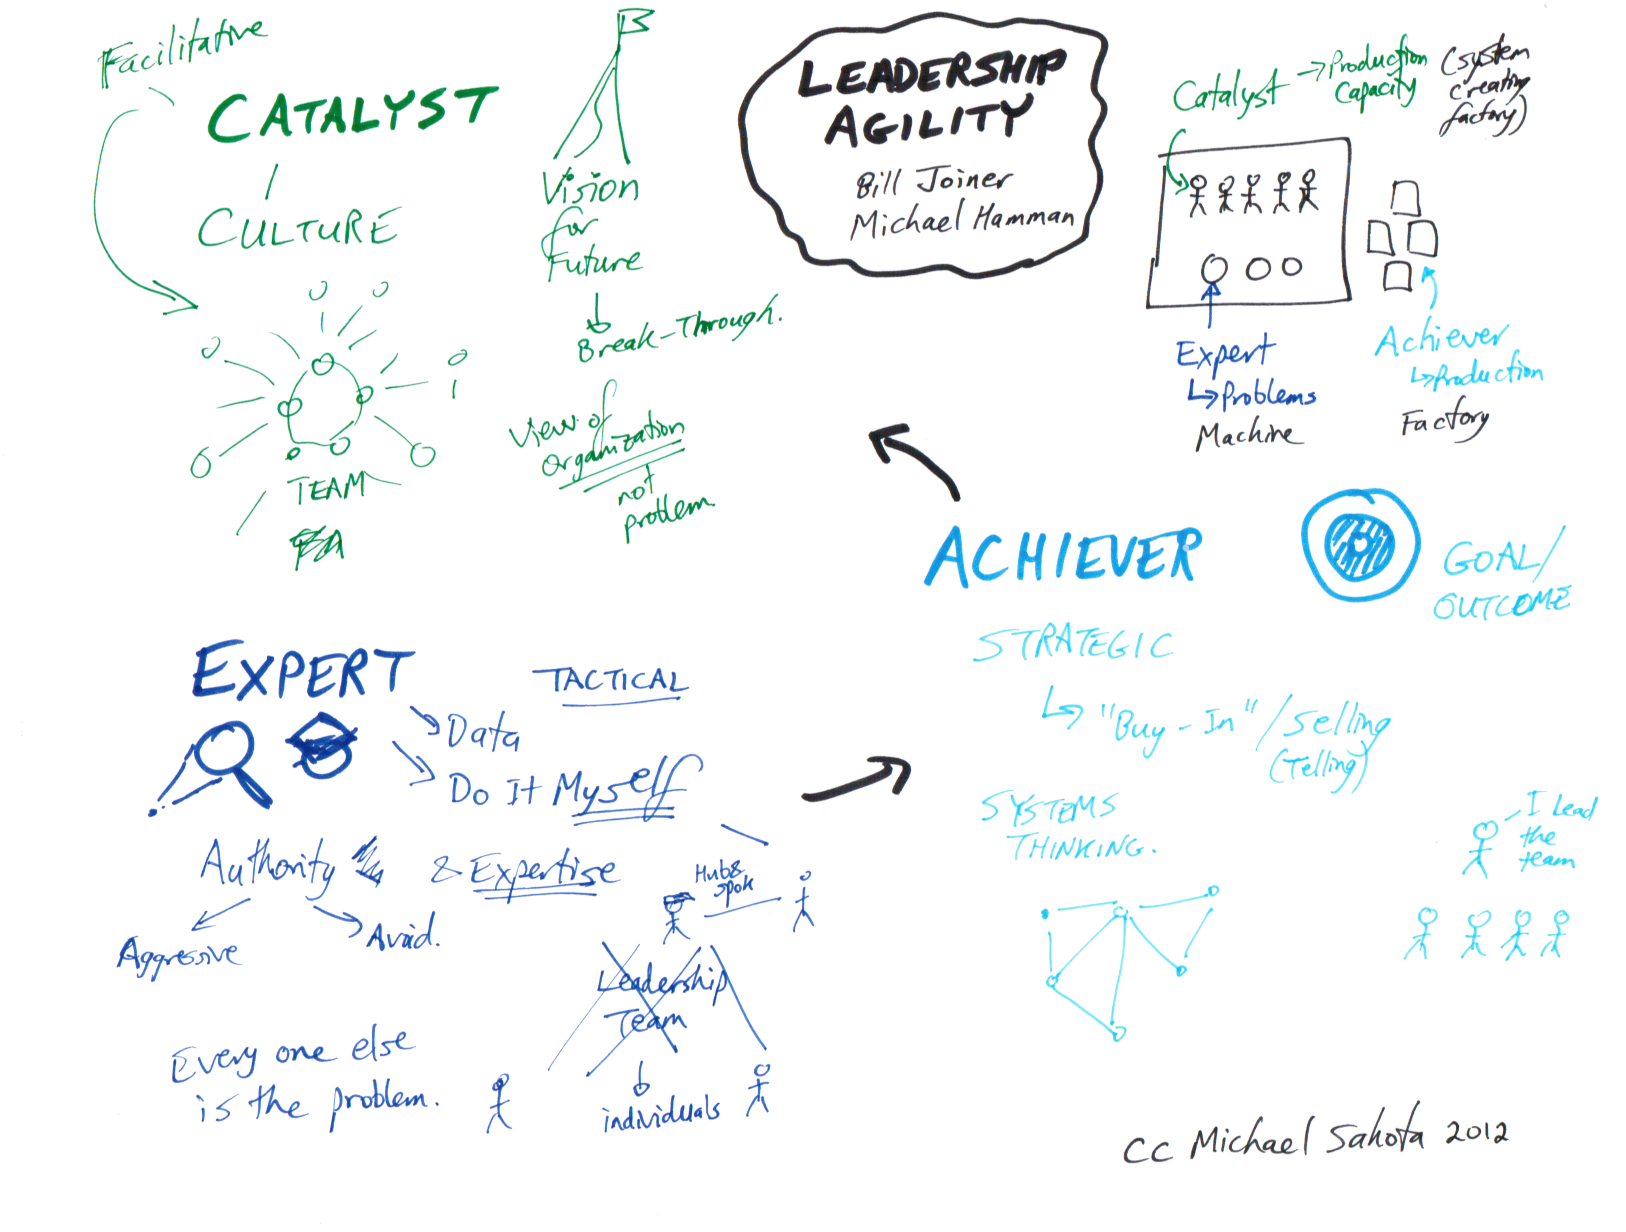 Facilitative
CATALYST
CULTURE
TEAM
Vision
for
Future
Break-Through.
View of
Organization
not
problem
LEADERSHIP
AGILITY
Bill Joiner
Michael Hamman
Catalyst → Production
Capacity
(system
creating
factory)
Expert
↳ Problems
Machine
Achiever
↳ Production
Factory
ACHIEVER
GOAL/
OUTCOME
STRATEGIC
↳ "Buy-In"/Selling
(Telling)
SYSTEMS
THINKING.
I Lead
the
team
EXPERT
TACTICAL
Data
Do It Myself
Authority & Expertise
Aggressive
Avoid.
Hub &
spok
Leadership
Team
individuals
Every one else
is the problem.
CC Michael Sahota 2012